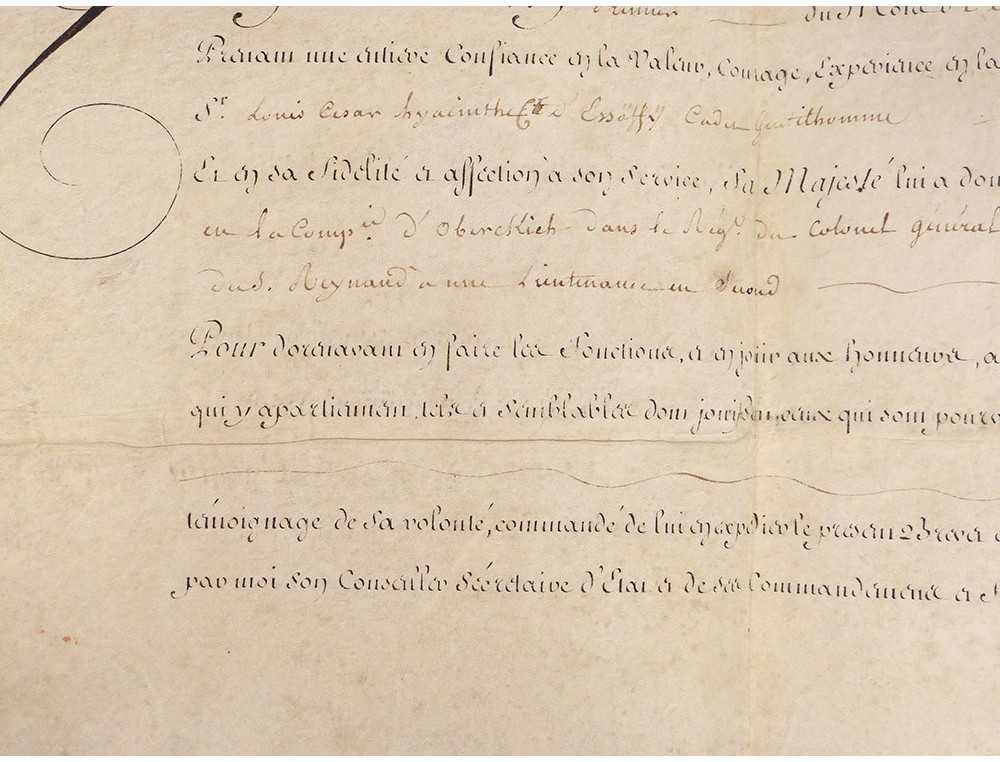 premier du Mois de
Prenant une entiere Confiance en la Valeur, Courage, Expérience en la
Sr. Louis Cesar hyacinthe Cte d'Essöffÿ Cadet Gentilhomme
Et en sa Fidelité et affection à son service, Sa Majesté lui a don
en la Compie. d'Oberckich dans le Régt. du Colonel général
du S. Reynaud a une Lieutenance en Second
Pour dorenavant en faire les Fonctions, et en jouir aux honneurs, a
qui y apartiennent, tels et semblables dont jouissent ceux qui sont pourv
témoignage de sa volonté, commandé de lui en expedier le present Brevet
par moi son Conseiller Sécrétaire d'Etat et de ses Commandemens et